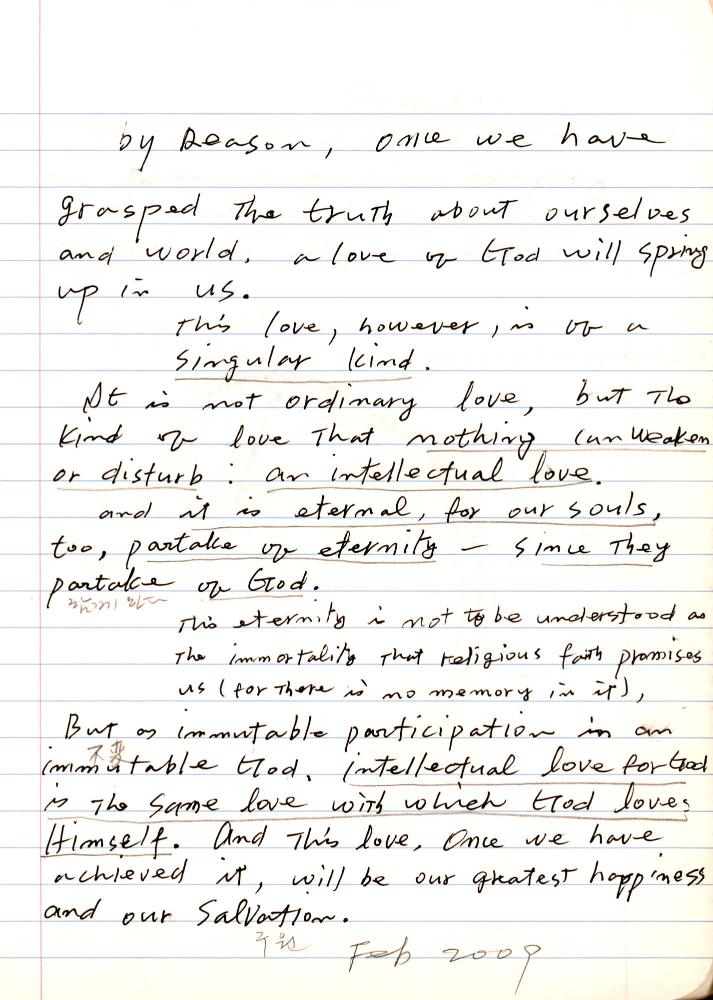 by Reason, once we have
grasped the truth about ourselves
and world, a love of God will spring
up in us.
This love, however, is of a
singular kind.
It is not ordinary love, but the
kind of love that nothing can weaken
or disturb : an intellectual love.
and it is eternal, for our souls,
too, partake of eternity — since they
partake of God.
함께 하다
This eternity is not to be understood as
the immortality that religious faith promises
us (for there is no memory in it),
But as immutable participation in an
不変
immutable God, intellectual love for God
is the same love with which God loves
Himself. And this love, once we have
achieved it, will be our greatest happiness
and our Salvation.
구원
Feb 2009